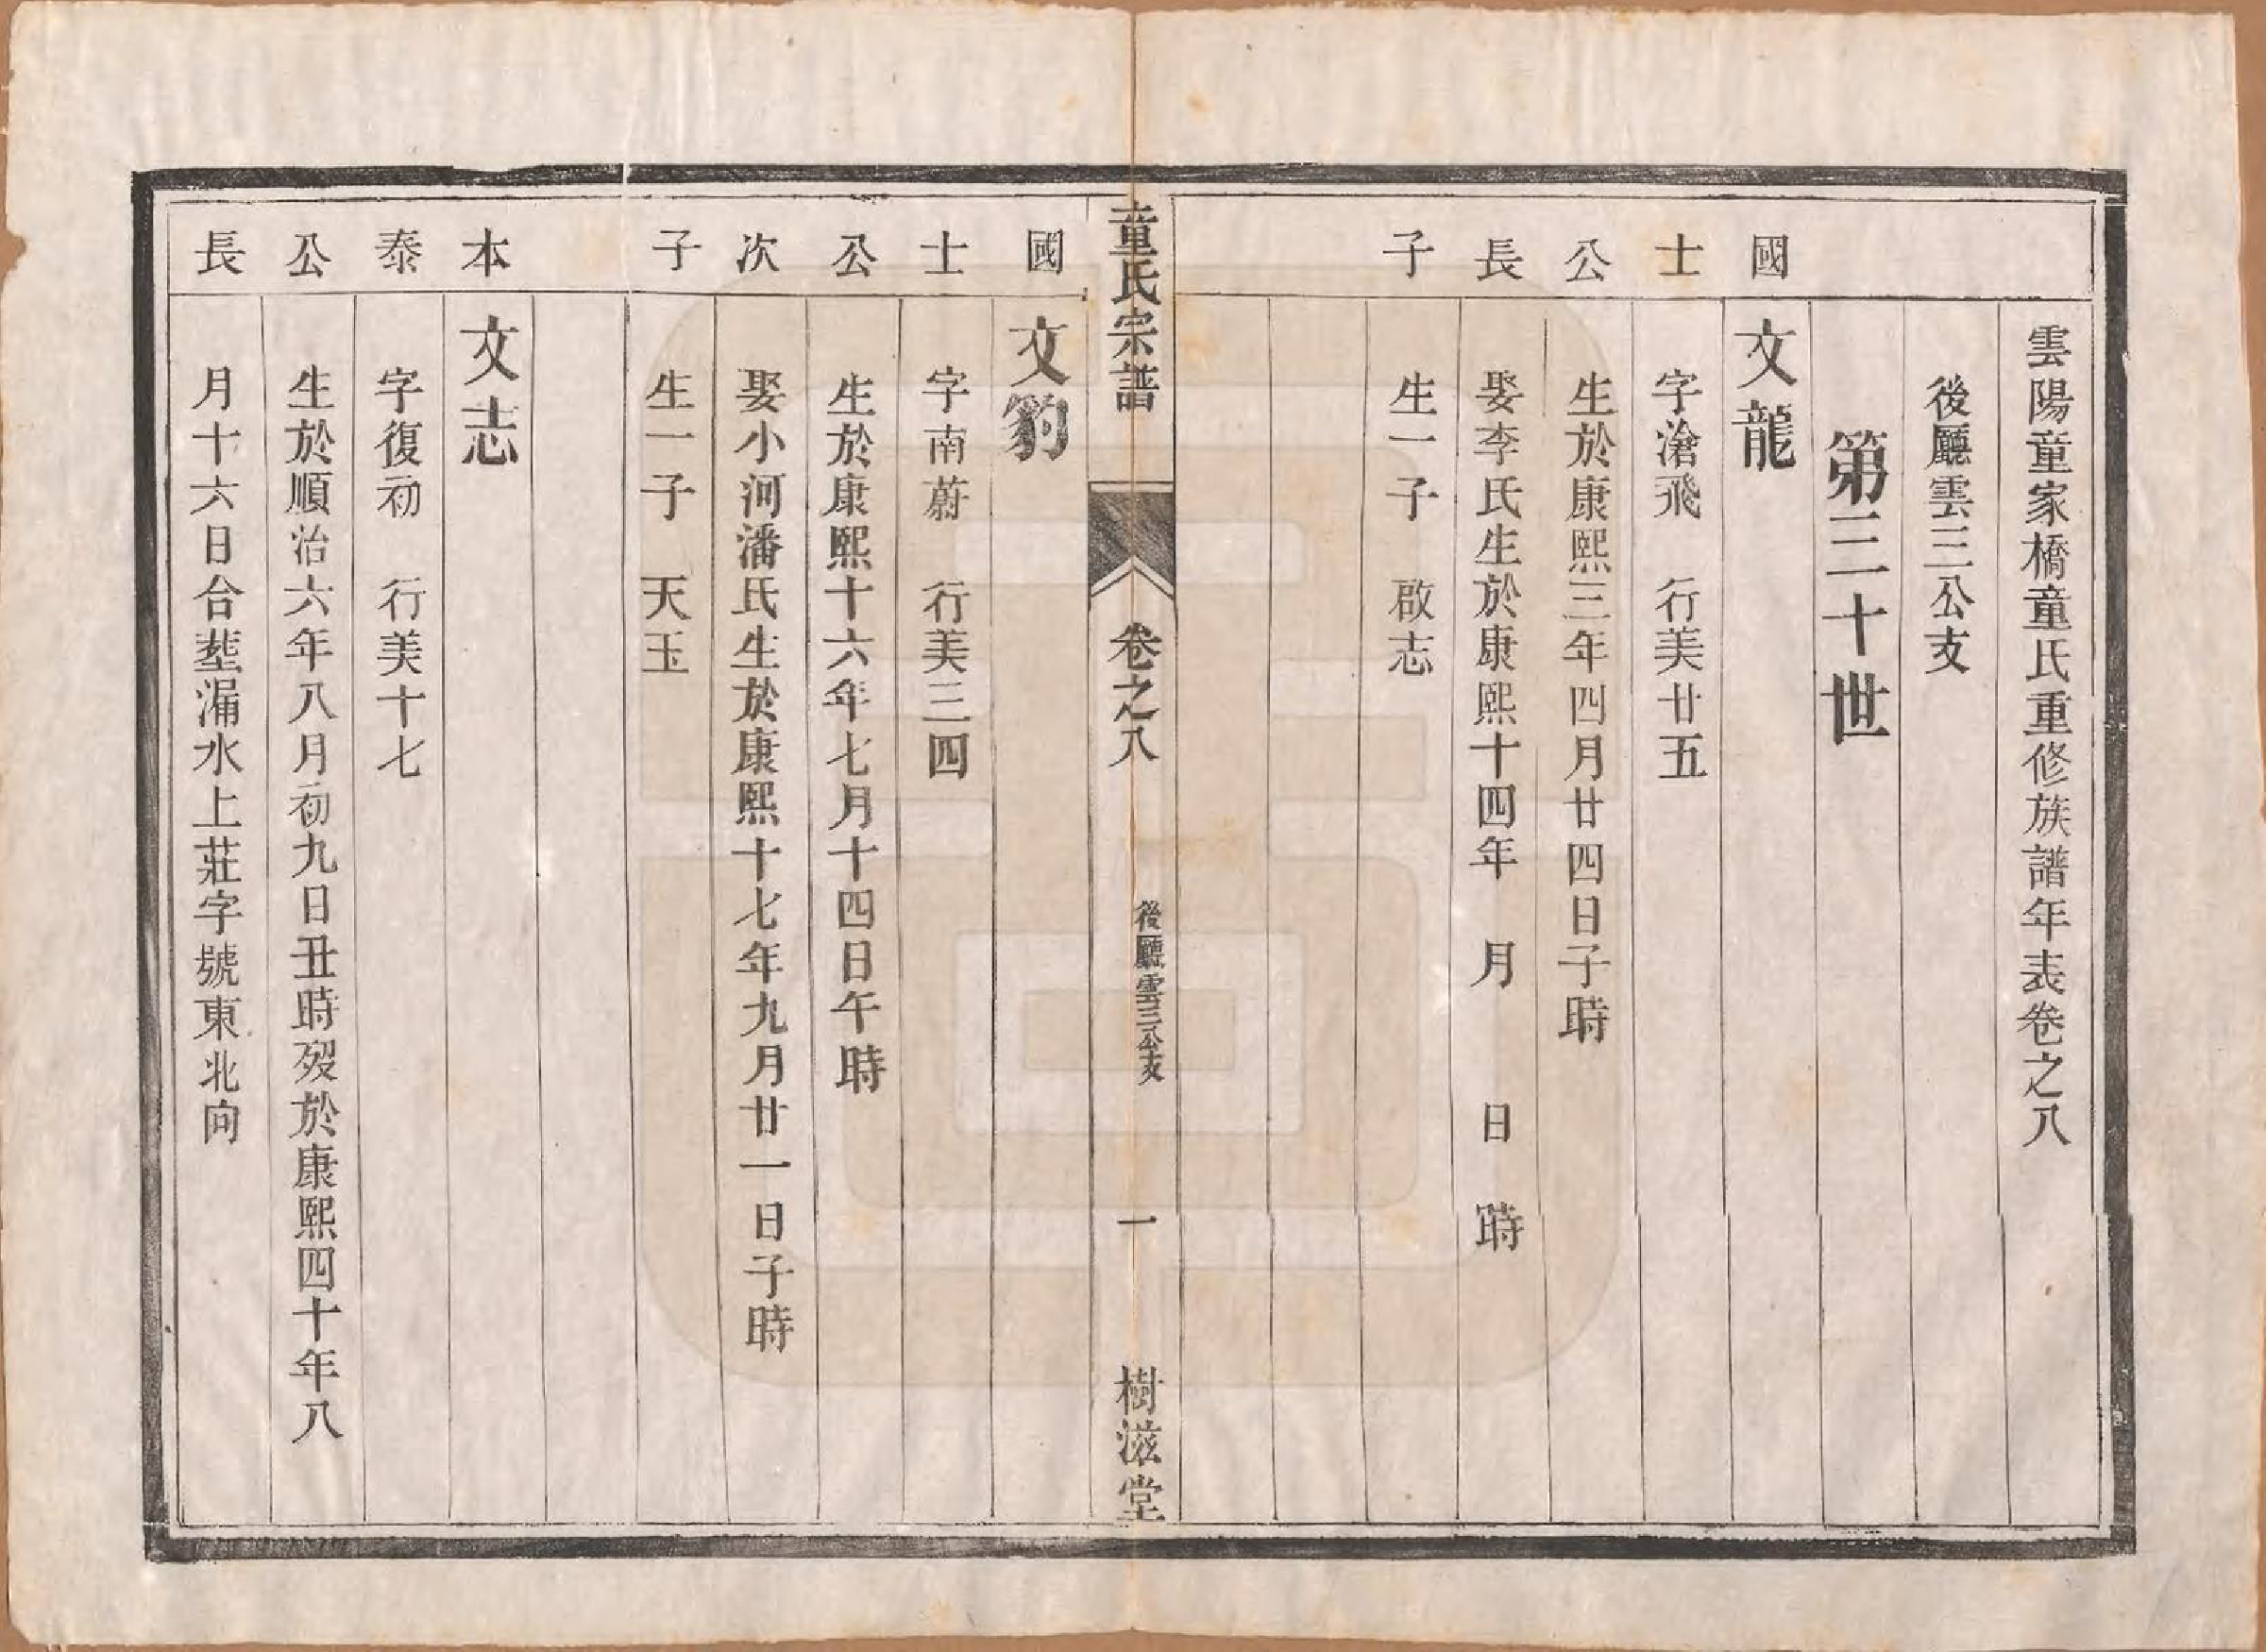 雲陽童家橋童氏重修族譜年表卷之八
後廳雲三公支
第三十世
國士公長子
文龍
字滄飛　行美廿五
生於康熙三年四月廿四日子時
娶李氏生於康熙十四年　月　日　時
生一子　啟志
童氏宗譜　卷之八　後廳雲三公支　一　樹滋堂
國士公次子
文豹
字南蔚　行美三四
生於康熙十六年七月十四日午時
娶小河潘氏生於康熙十七年九月廿一日子時
生一子　天玉
本泰公長
文志
字復初　行美十七
生於順治六年八月初九日丑時歿於康熙四十年八
月十六日合塟漏水上莊字號東北向